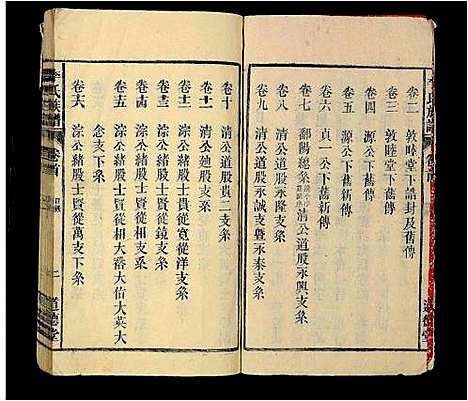 李氏族譜 卷首
卷二 敦睦堂下誥封及舊傳
卷三 敦睦堂下舊傳
卷四 源公下舊傳
卷五 源公下舊傳
卷六 貞一公下新舊傳
卷七 鄱陽總系 清公道股永興支系
卷八 清公道股永隆支系
卷九 清公道股永誠支暨永泰支系
卷十 清公道股貴二支系
卷十一 清公廸股支系
卷十二 淙公豬股士賢從寬從洋支系
卷十三 淙公豬股士賢從鏡支系
卷十四 淙公豬股士賢從相支系
卷十五 淙公豬股士賢從相大蕃大佑大英大
念支下系
卷十六 淙公豬股士賢從萬支下系
李氏族譜 卷首 目錄 二 道德堂